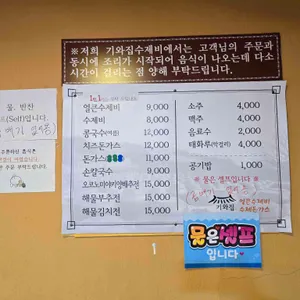 ※저희 기와집수제비에서는 고객님의 주문과
동시에 조리가 시작되어 음식이 나오는데 다소
시간이 걸리는 점 양해 부탁드립니다.
물, 반찬
(Self)입니다.
얼큰수제비 9,000
수제비 8,000
콩국수 9,000
치즈돈가스 12,000
돈가스 11,000
손칼국수 9,000
15,000
해물부추전 15,000
해물김치전 15,000
소주 4,000
맥주 4,000
음료수 2,000
태화루(막걸리) 4,000
공기밥 1,000
※ 물은 셀프입니다 ※
기와집
얼큰수제비
수제돈가스
물은셀프
입니다